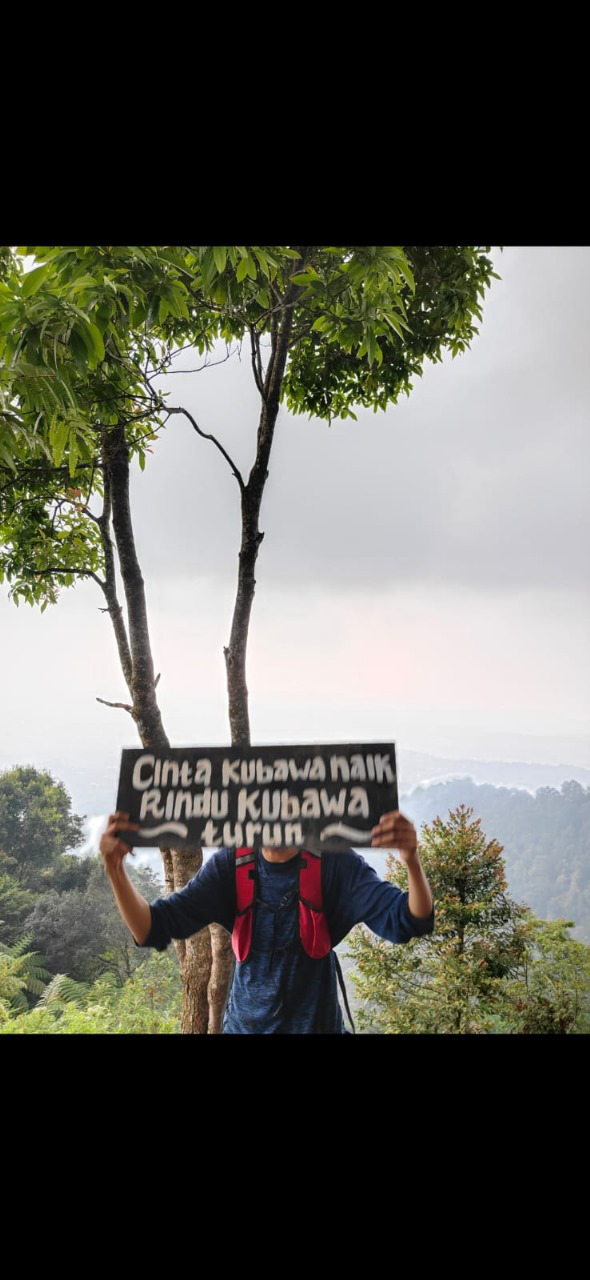 Cinta Kubawa naik
Rindu Kubawa
turun